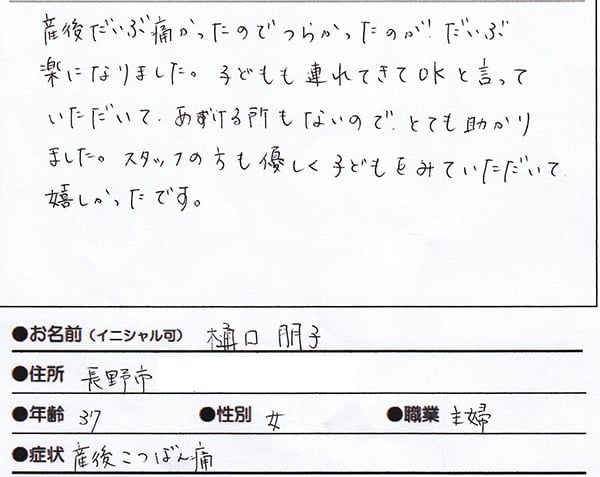 産後だいぶ痛かったのでつらかったのが、だいぶ
楽になりました。子どもも連れてきてOKと言って
いただいて、あずける所もないので、とても助かり
ました。スタッフの方も優しく子どもをみていただいて、
嬉しかったです。
●お名前（イニシャル可） 樋口 朋子
●住所 長野市
●年齢 37 ●性別 女 ●職業 主婦
●症状 産後こつばん痛